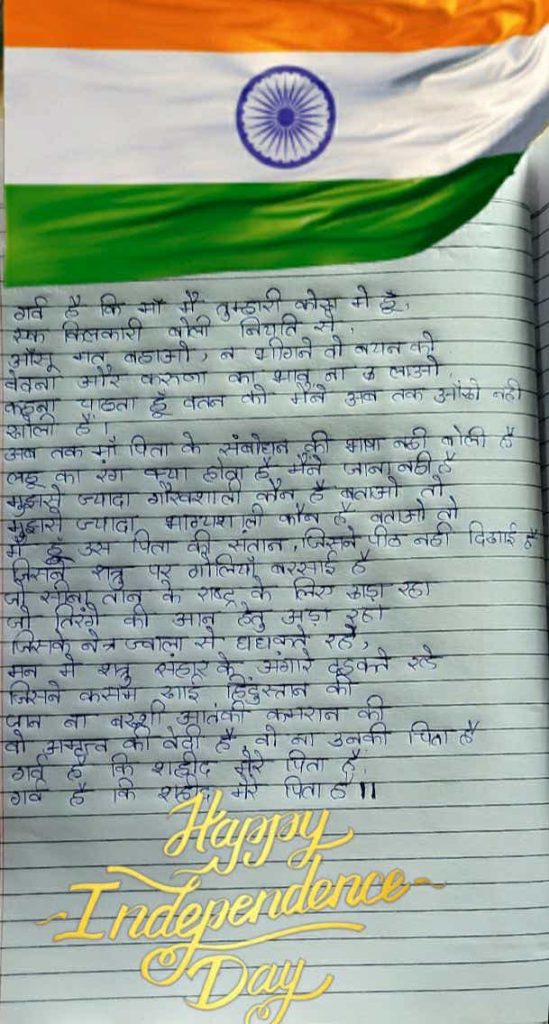 गर्व है कि माँ मैं तुम्हारी कोख मे हूँ,
एक किलकारी बोली नियति से,
आँसू मत बहाओ, न भीगने दो नयन को
वेदना और करुणा का भाव ना लाओ,
कहना चाहता हूँ वतन को मैंने अब तक आँखे नही
खोली है।
अब तक माँ पिता के संबोधन की भाषा नही बोली है
लहू का रंग क्या होता है मैंने जाना नही है
मुझसे ज्यादा गौरवशाली कौन है बताओ तो
मुझसे ज्यादा भाग्यशाली कौन है बताओ तो
मैं हूँ उस पिता की संतान, जिसने पीठ नही दिखाई है
जिसने शत्रु पर गोलियाँ बरसाई है
जो सीना तान के राष्ट्र के लिए खड़ा रहा
जो तिरंगे की आन हेतु अड़ा रहा
जिसके नेत्र ज्वाला से धधकते रहे,
मन मे शत्रु संहार के अंगारे दहकते रहे
जिसने कसम खाई हिंदुस्तान की
जान ना बख्शी आतंकी कमरान की
वो अमृत्व की वेदी है, वो ना उनकी चिता है
गर्व है कि शहीद मेरे पिता है,
गर्व है कि शहीद मेरे पिता है ।।
Happy
Independence
Day